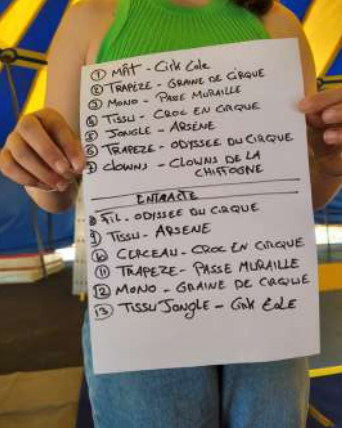 ① MÂT - Cirk Eole
② TRAPEZE - GRAINE DE CIRQUE
③ MONO - PASSE MURAILLE
④ TISSU - CROC EN CIRQUE
⑤ JONGLE - ARSENE
⑥ TRAPEZE - ODYSSEE DU CIRQUE
⑦ CLOWNS - CLOWNS DE LA
CHIFFOGNE
ENTRACTE
⑧ FIL - ODYSSEE DU CIRQUE
⑨ TISSU - ARSENE
⑩ CERCEAU - CROC EN CIRQUE
⑪ TRAPEZE - PASSE MURAILLE
⑫ MONO - GRAINE DE CIRQUE
⑬ TISSU JONGLE - Cirk EOLE